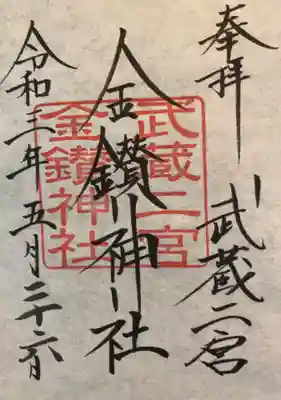 奉拝
武蔵二宮
金鑚神社
武蔵二宮
金鑚神社
令和三年五月二十六日